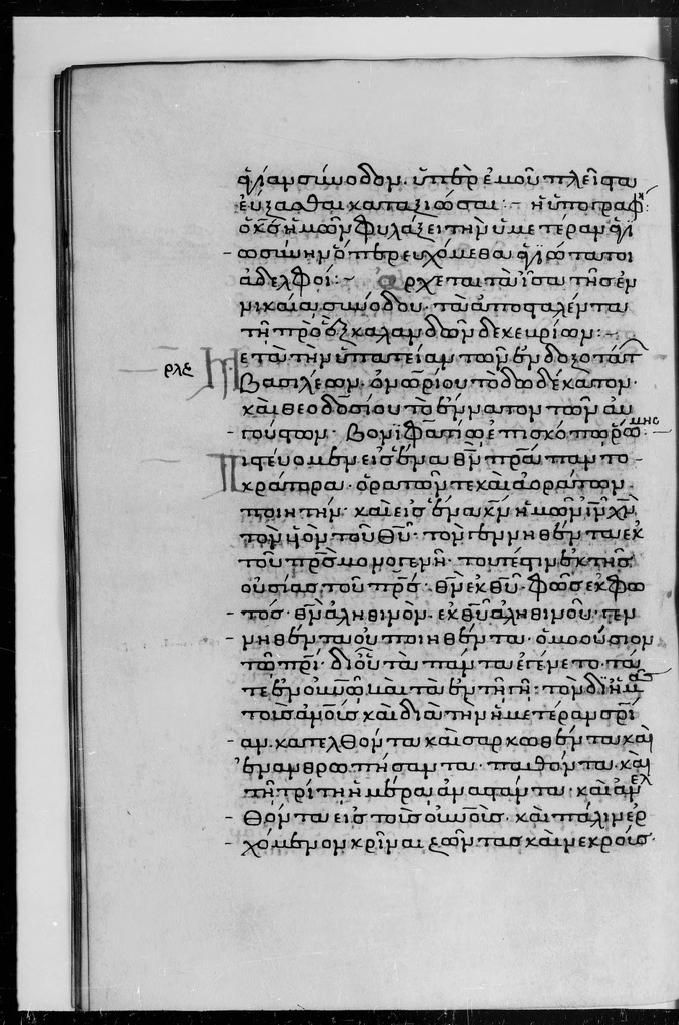 ἁγίαν σύνοδον. ὑπὲρ ἐμοῦ πλεῖστα
εὔξασθαι καταξιῶσαι :– ἡ ὑπογραφή:
ὁ κς ἡμῶν φυλάξει τὴν ὑμετέραν ἁγι
ωσύνην ὅπερ εὐχόμεθα ἁγιώτατοι
ἀδελφοί :– ἄρχεται τὰ ἴσα τῆς ἐν
νικαίᾳ συνόδου. τὰ ἀποσταλέντα
τῇ πρὸ ϛ καλανδῶν δεκεβρίων :–
ρλϛ Μετὰ τὴν ὑπατείαν τῶν ἐνδοξοτάτ
βασιλέων. ὁνωρίου τὸ δωδέκατον.
καὶ θεοδοσίου τὸ ἔννατον τῶν αὐ
γούστων. βονϊφατίῳ ἐπισκόπῳ ῥώμης
Πιστεύομεν εἰς ἕνα θν πρα παντο
κράτορα. ὁρατῶν τε καὶ ἀοράτων
ποιητήν. καὶ εἰς ἕνα κν ἡμῶν ιν χν
τὸν υον τοῦ θυ. τὸν γεννηθέντα ἐκ
τοῦ πρς μονογενῆ. τουτέστιν ἐκ τῆς
οὐσίας τοῦ πρς. θν ἐκ θυ. φῶς ἐκ φω
τός. θν ἀληθινὸν. ἐκ θυ ἀληθινοῦ. γεν
νηθέντα οὐ ποιηθέντα. ὁμοούσιον
τῷ πρι. δι οὗ τὰ πάντα ἐγένετο. τά
τε ἐν ουνω καὶ τὰ ἐν τῇ γῇ : τὸν δι ἡμᾶς
τοὺς ανους καὶ διὰ τὴν ἡμετέραν σρι
αν. κατελθόντα καὶ σαρκωθέντα καὶ
ἐνανθρωπήσαντα. παθόντα. καὶ
τῇ τρίτῃ ἡμέρᾳ ἀναστάντα. καὶ ἀνελ
θόντα εἰς τοὺς ουνους. καὶ πάλιν ἐρ
χόμενον κρῖναι ζῶντας καὶ νεκρούς.